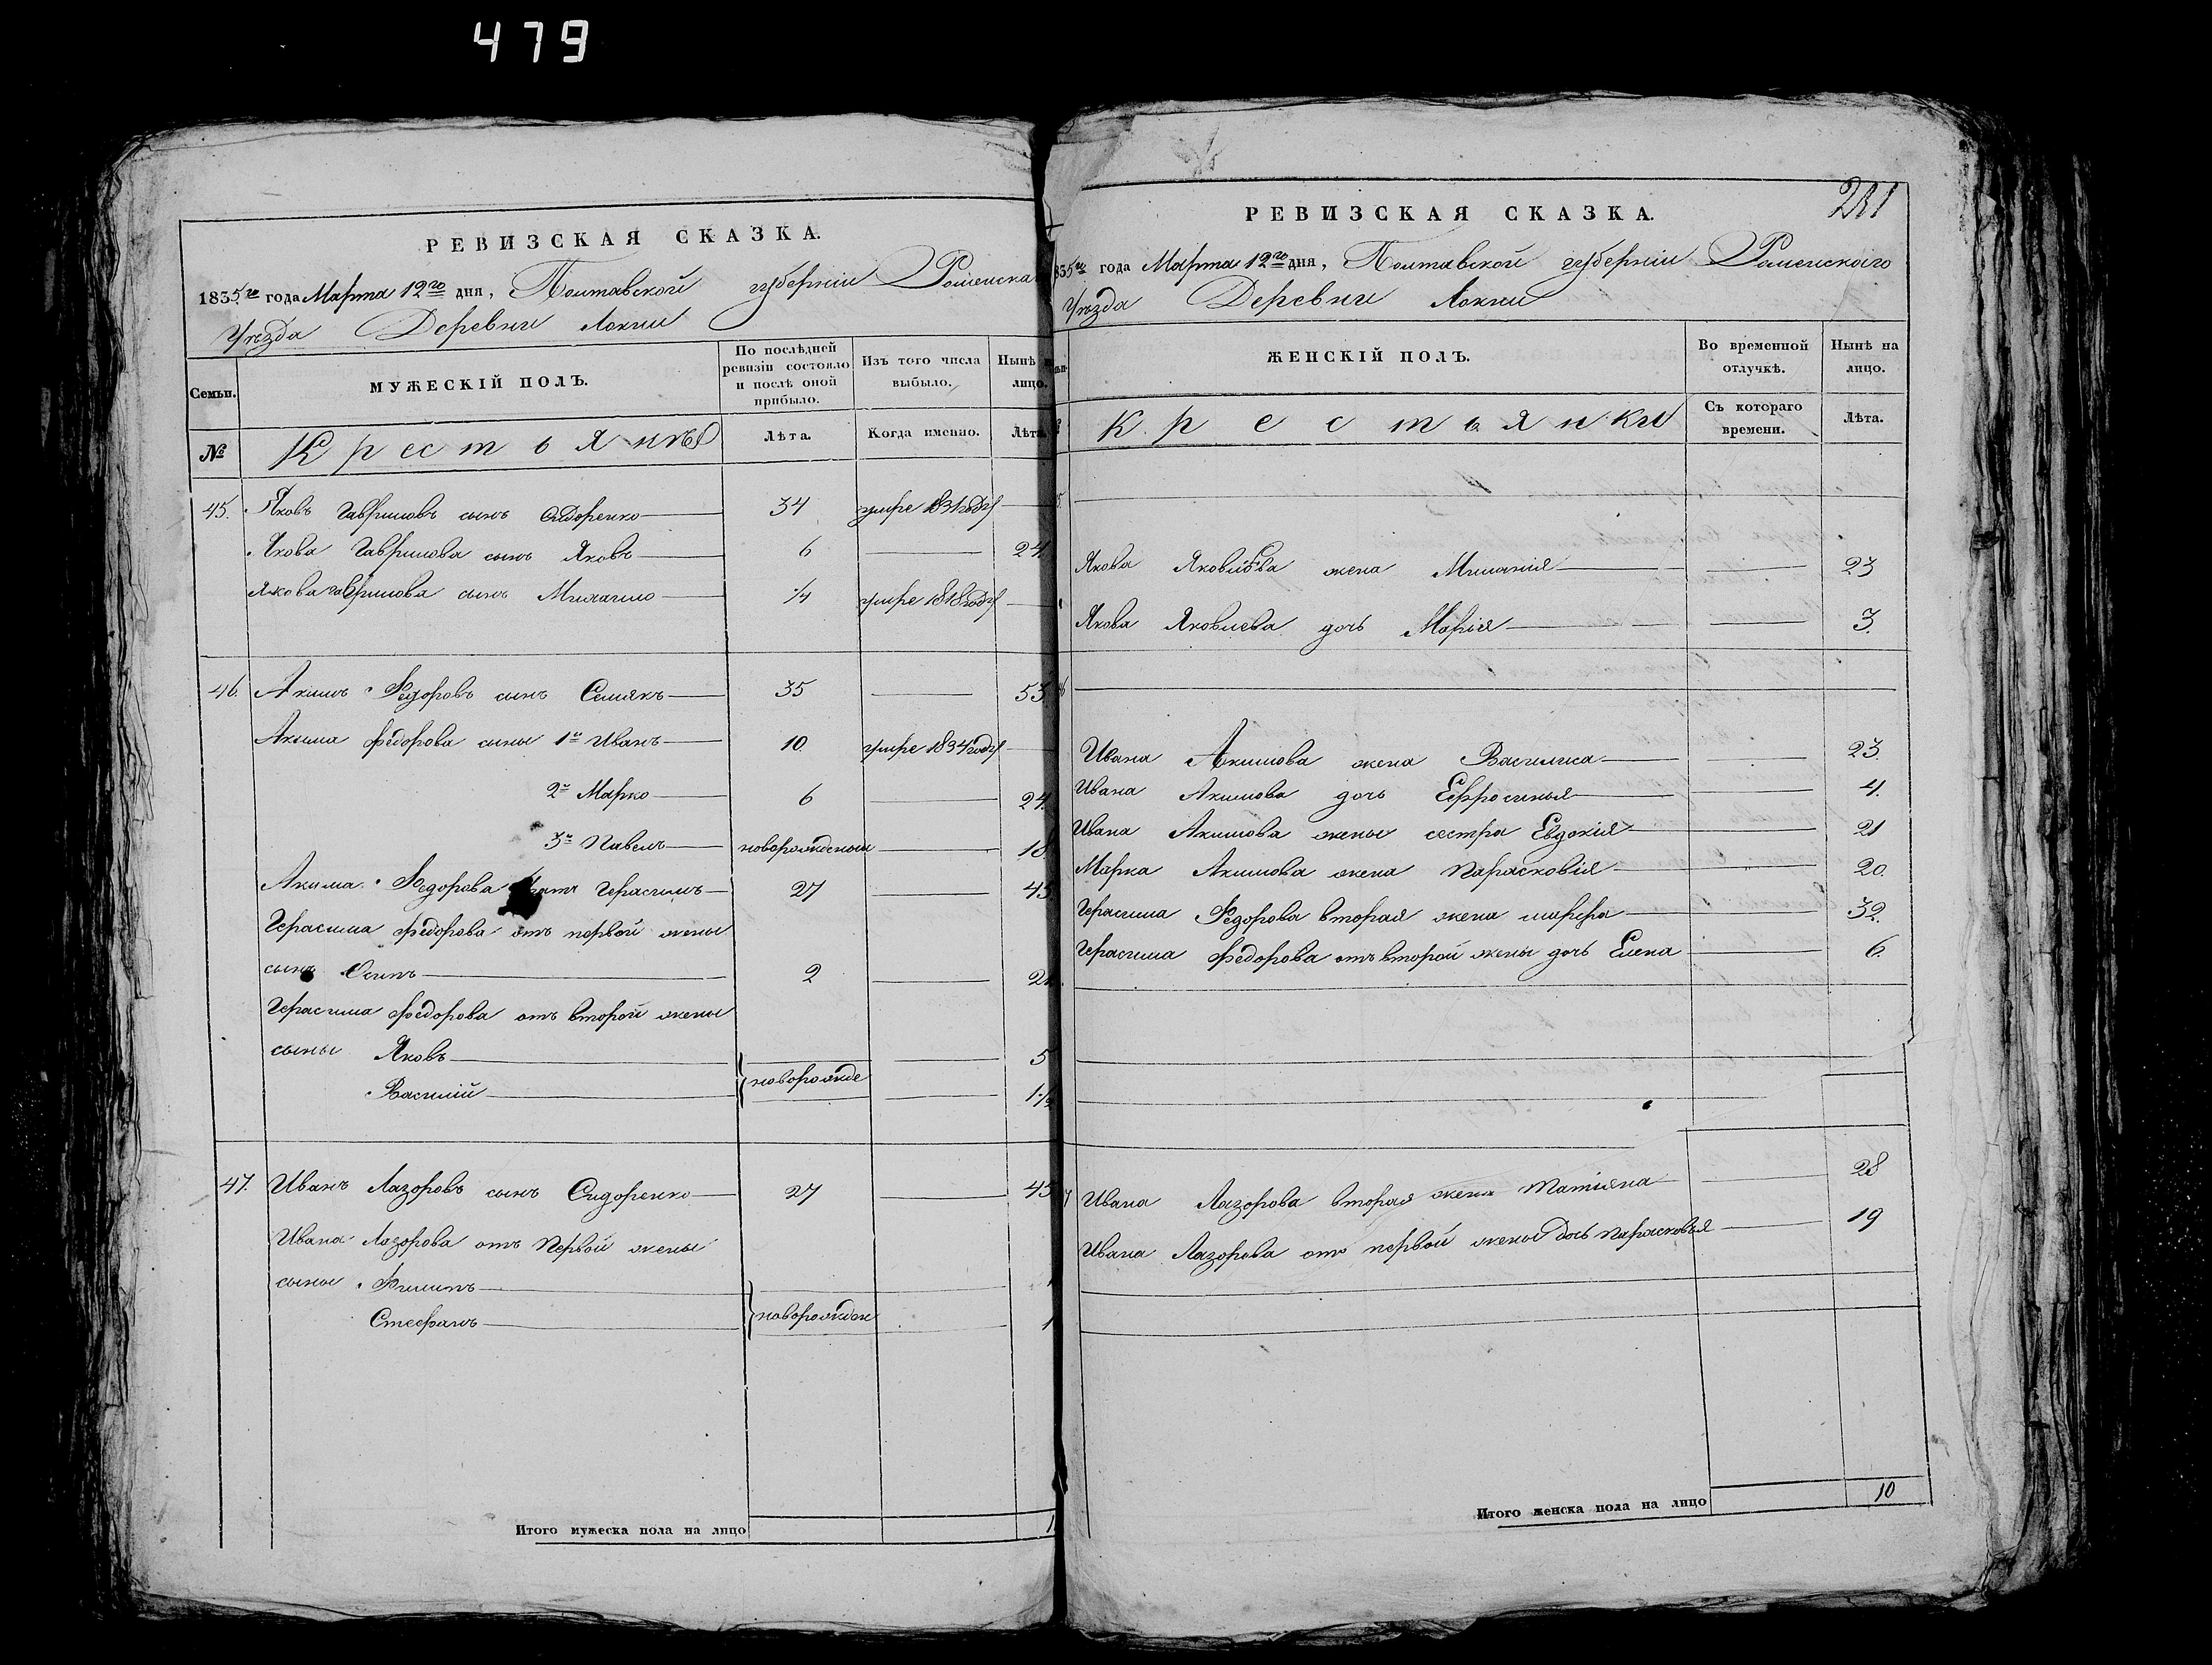 479
РЕВИЗСКАЯ СКАЗКА.
1835го года Марта 12го дня, Полтавской губерніи Роменска
Уѣзда Деревни Локни
Семьи.
МУЖЕСКІЙ ПОЛЪ.
По послѣдней ревизіи состояло и послѣ оной прибыло.
Изъ того числа выбыло.
Нынѣ
лицо.
№
Крестьянѣ
Лѣта.
Когда именно.
Лѣта
45. Яковъ Гавриловъ сынъ Сидоренко 34 умре 1831 году
Якова Гаврилова сынъ Яковъ 6 24
Якова Гаврилова сынъ Михайло 1/4 умре 1818 году
46. Акимъ Федоровъ сынъ Семякъ 35 53
Акима Федорова сыны 1й Иванъ 10 умре 1834 году
2й Марко 6 24
3й Павелъ новорожденыи 18
Акима Федорова братъ Герасимъ 27 45
Герасима Федорова отъ первой жены
сынъ Осипъ 2 2
Герасима Федорова отъ второй жены
сыны Яковъ 5
Василій новорожде 1 1/2
47. Иванъ Лазоровъ сынъ Сидоренко 27 45
Ивана Лазорова отъ Первой жены
сыны Филипъ 1
Стефанъ новорожден 1
Итого мужеска пола на лицо 1
РЕВИЗСКАЯ СКАЗКА.
281
835го года Марта 12го дня, Полтавской губерніи Роменскаго
Уѣзда Деревни Локни
ЖЕНСКІЙ ПОЛЪ.
Во временной отлучкѣ.
Нынѣ на лицо.
Крестьянки
Съ котораго времени.
Лѣта.
Якова Яковлева жена Миланія 23
Якова Яковлева дочь Марія 3.
Ивана Акимова жена Василиса 23.
Ивана Акимова дочь Ефросинья 4.
Ивана Акимова жены сестра Евдокія 21
Марка Акимова жена Парасковія 20.
Герасима Федорова вторая жена марфа 32.
Герасима Федорова отъ второй жены дочь Елена 6.
Ивана Лазорова вторая жена Татіяна 28
Ивана Лазорова отъ первой жены дочь Парасковья 19
Итого женска пола на лицо 10